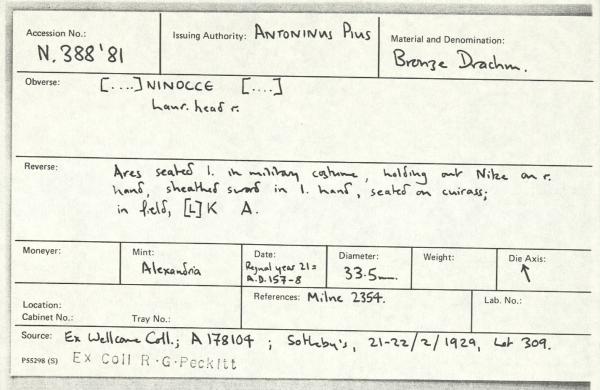 Accession No.: N. 388'81
Issuing Authority: ANTONINUS PIUS
Material and Denomination: Bronze Drachm.
Obverse: [....] NINOCCE [....]
Laur. head r.
Reverse: Ares seated l. in military costume, holding out Nike on r.
hand, sheathed sword in l. hand, seated on cuirass;
in field, [L]K A.
Moneyer:
Mint: Alexandria
Date: Regnal year 21 =
A.D. 157-8
Diameter: 33.5mm.
Weight:
Die Axis: ↑
Location:
Cabinet No.: Tray No.:
References: Milne 2354.
Lab. No.:
Source: Ex Wellcome Coll.; A178104 ; Sotheby's, 21-22/2/1929, Lot 309.
P55298 (S) Ex Coll R.G.Peckitt